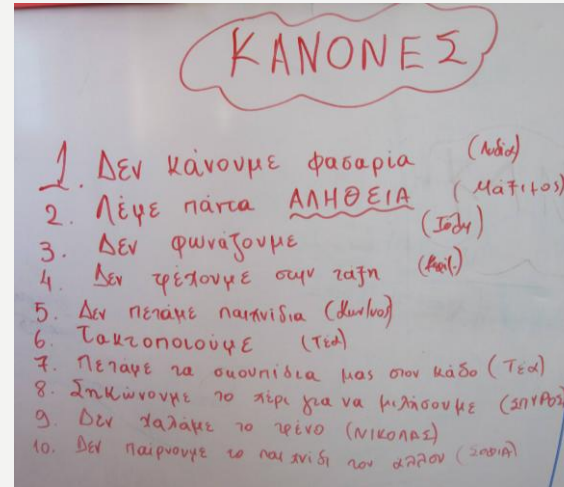 ΚΑΝΟΝΕΣ
1. Δεν κάνουμε φασαρία (Λυδία)
2. Λέμε πάντα ΑΛΗΘΕΙΑ (Μάξιμος)
3. Δεν φωνάζουμε
4. Δεν τρέχουμε στην τάξη
5. Δεν πετάμε παιχνίδια (Κων/νος)
6. Τακτοποιούμε (Τέα)
7. Πετάμε τα σκουπίδια μας στον κάδο (Τέα)
8. Σηκώνουμε το χέρι για να μιλήσουμε (ΣΠΥΡΟΣ)
9. Δεν χαλάμε το τρένο (ΝΙΚΟΛΑΣ)
10. Δεν παίρνουμε το παιχνίδι του άλλου (ΣΟΦΙΑ)